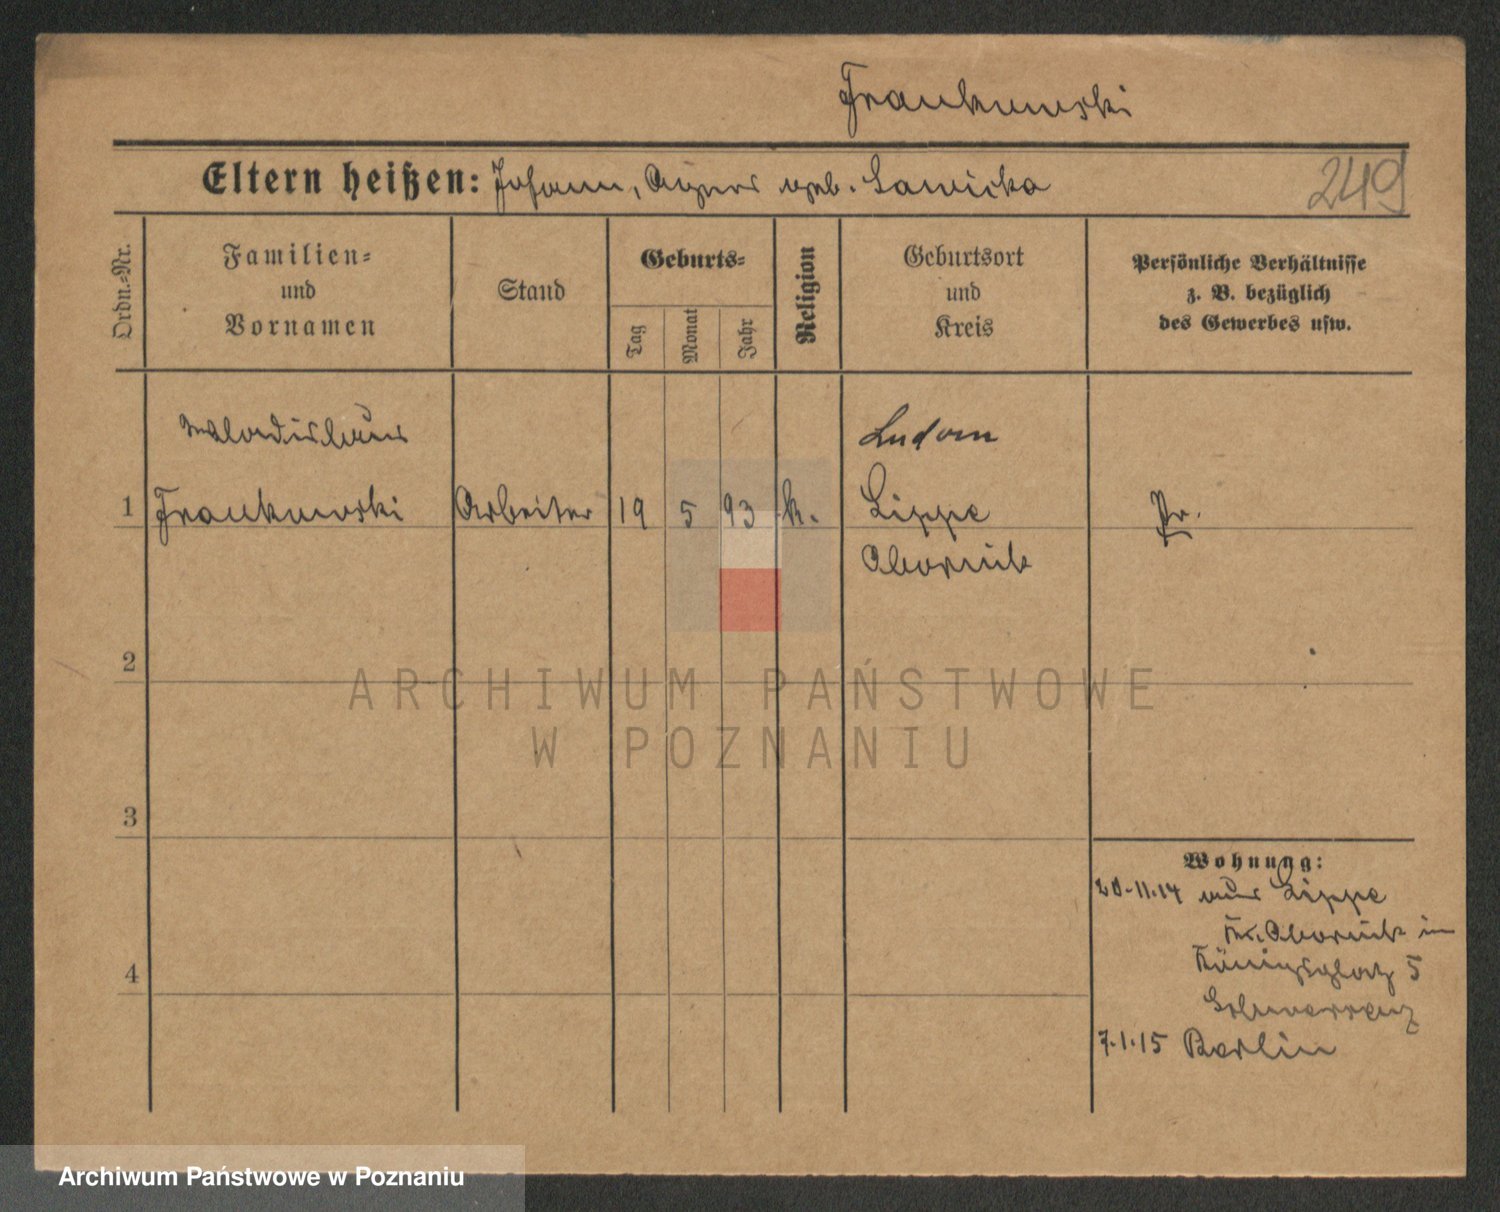 Frankowski
Eltern heißen: Johann, Agnes geb. Sawicka
249
Ordn.-Nr.
Familien-
und
Vornamen
Stand
Geburts-
Tag
Monat
Jahr
Religion
Geburtsort
und
Kreis
Persönliche Verhältnisse
z. B. bezüglich
des Gewerbes usw.
Wladislaus
Ludom
1 Frankowski Arbeiter 19 5 93 k. Lippe Pr.
Obornik
2
ARCHIWUM PAŃSTWOWE
W POZNANIU
3
Wohnung:
20.11.14 aus Lippe
Kr. Obornik in
4
Königsplatz 5
7.1.15 Berlin
Archiwum Państwowe w Poznaniu